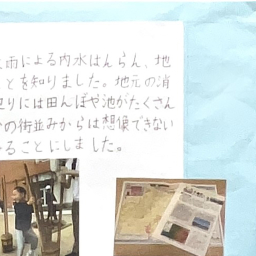 雨による内水はんらん、地
ことを知りました。地元の消
辺りには田んぼや池がたくさん
の街並みからは想像できない
ることにしました。